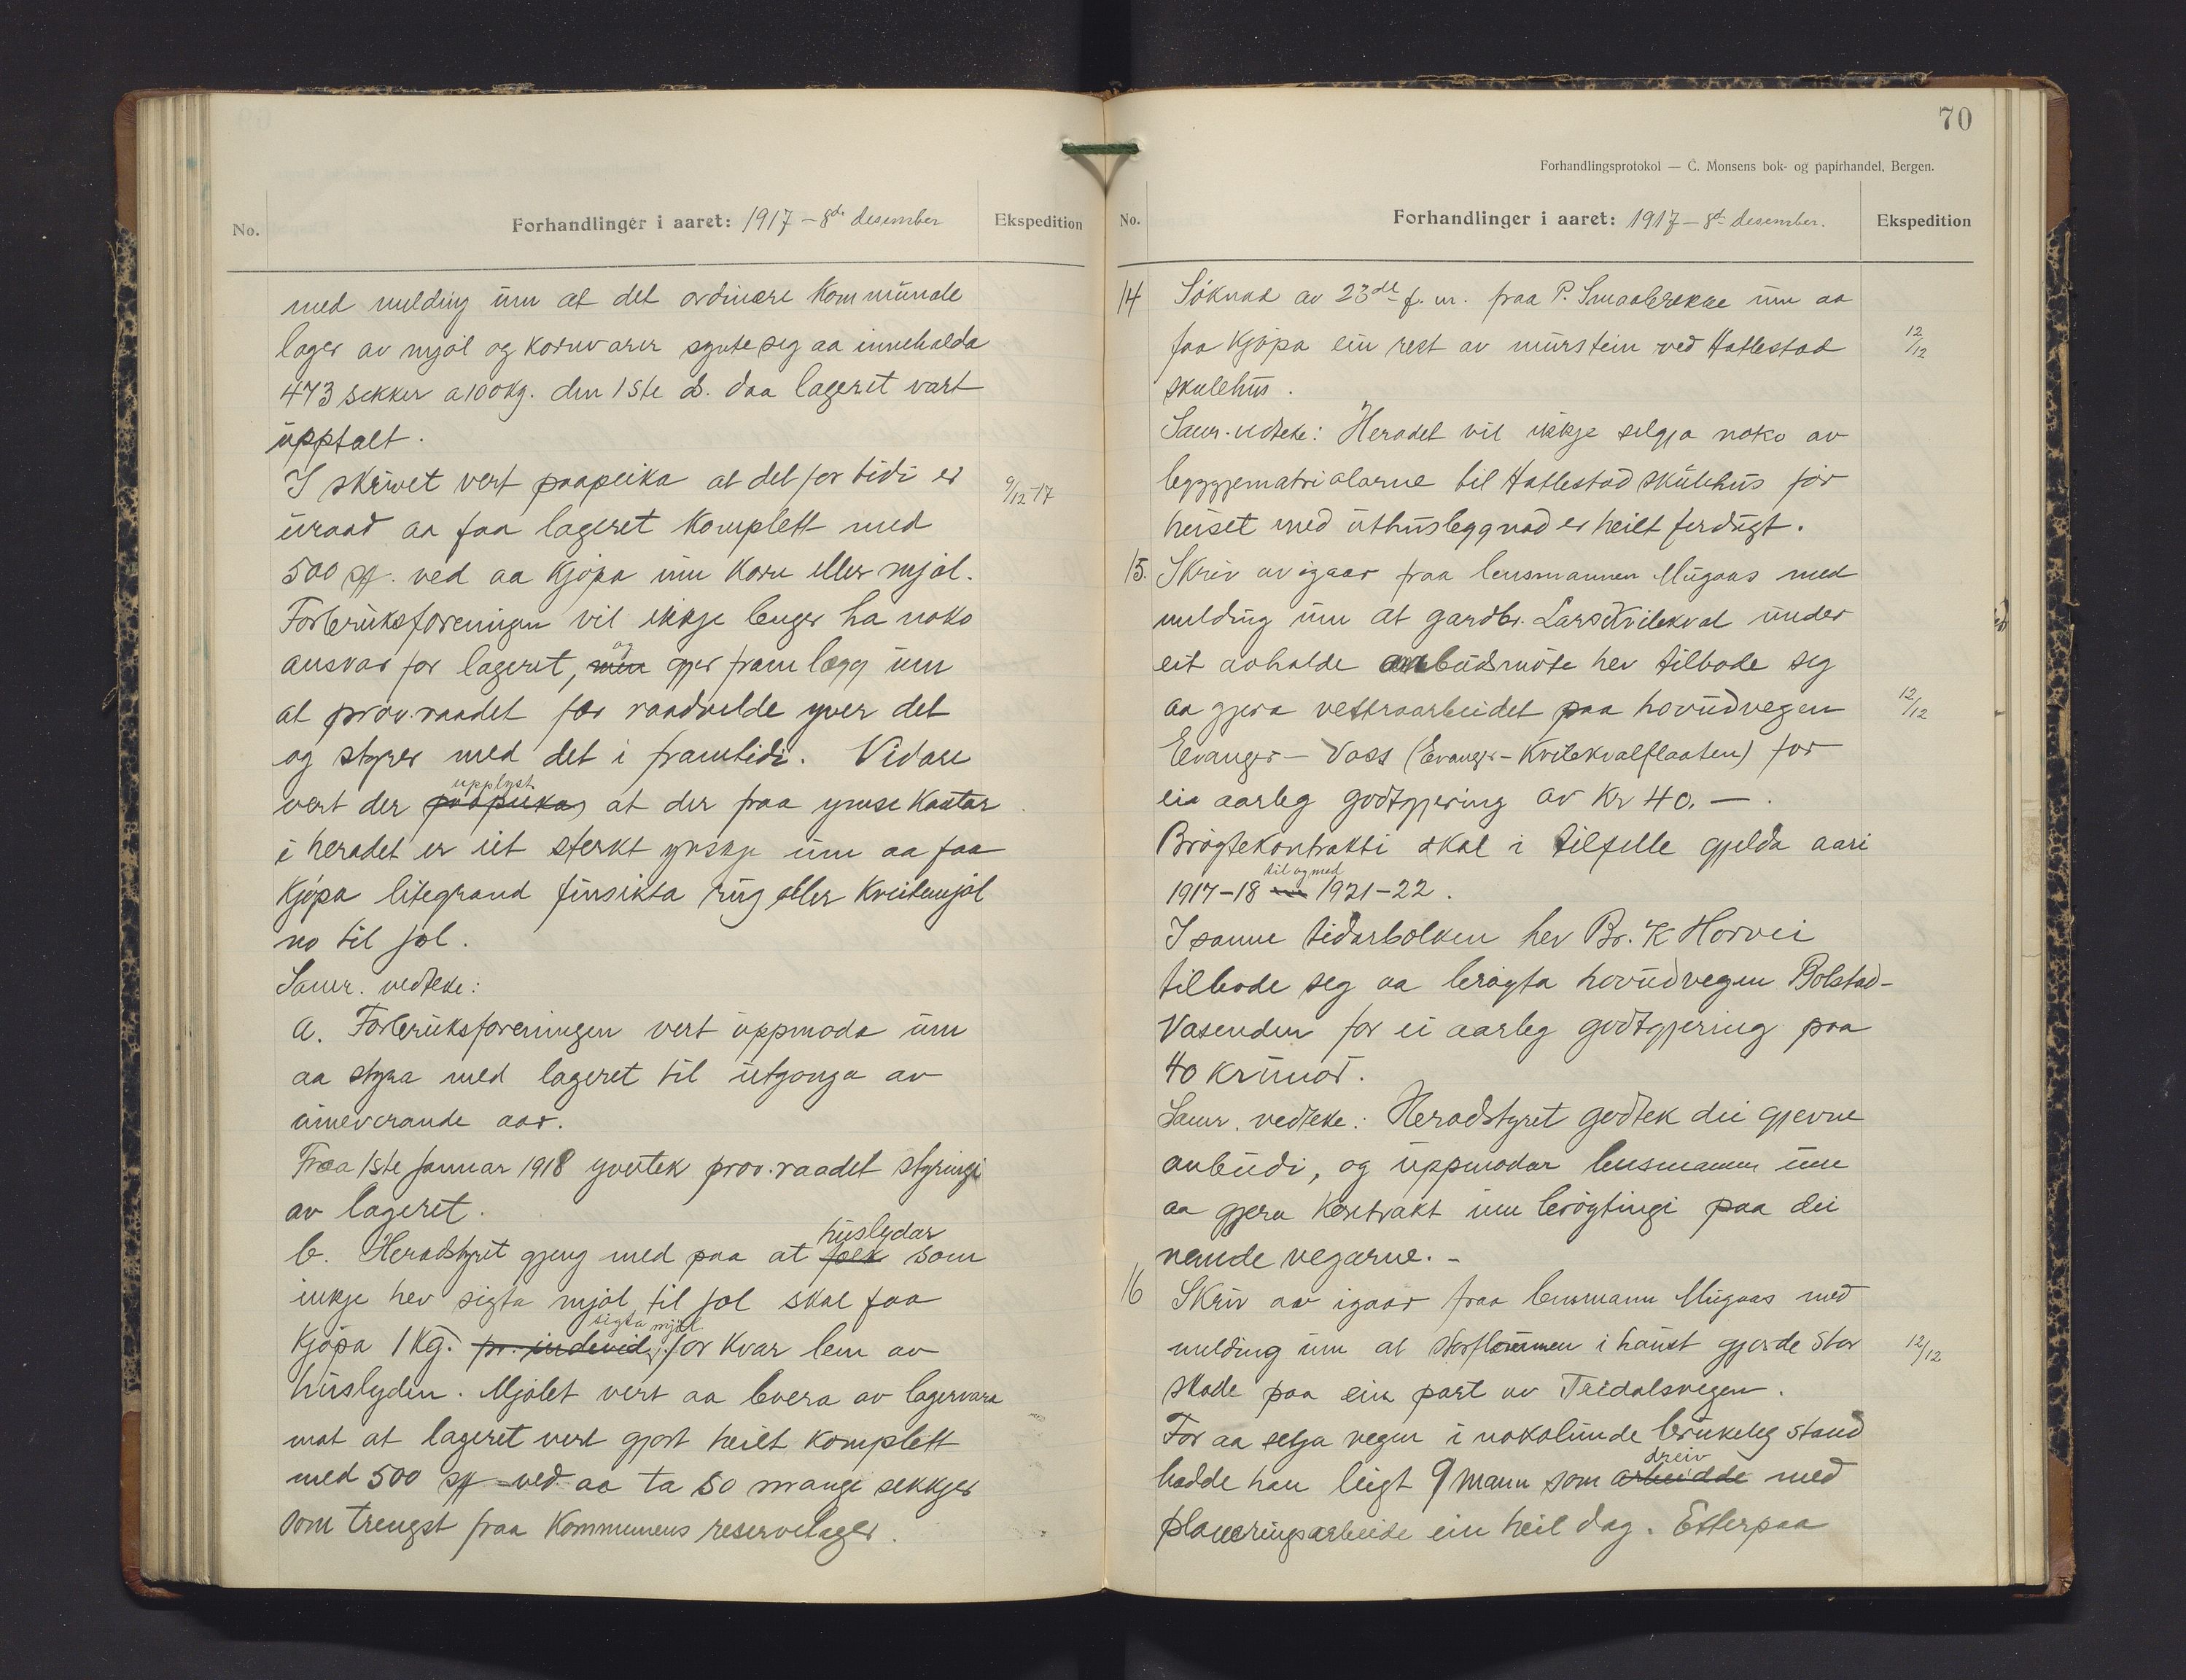 No.
Forhandlinger i aaret: 1917 – 8de desember
Ekspedition
med melding um at det ordinære kommunale
lager av mjøl og kornvarer synte seg aa innehalda
473 sekker a 100 kg. den 1ste ds. daa lageret vart
upptalt.
I skrivet vert paapeika at det for tidi er
9/12-17
uraad aa faa lageret komplett med
500 sk. ved aa kjøpa inn korn eller mjøl.
Forbruksforeningen vil ikkje lenger ha noko
og
ansvar for lageret, men gjer framlegg um
at prov.raadet fær raadvelde yver det
og styrer med det i framtidi. Vidare
upplyst
vert der paapeika, at der fraa ymse kantar
i heradet er eit sterkt ynskje um aa faa
kjøpa litegrand finsikta rug eller kveitemjøl
no til jol.
Samr. vedteke:
a. Forbruksforeningen vert uppmoda um
aa styra med lageret til utgonga av
inneverande aar.
Fraa 1ste januar 1918 yvertek prov.raadet styringi
av lageret.
huslydar
b. Heradstyret gjeng med paa at folk som
inkje hev sigta mjøl til jol skal faa
sigta mjøl
kjøpa 1 kg. pr. individ, for kvar lem av
huslyden. Mjølet vert aa levera av lagervara
mot at lageret vert gjort heilt komplett
med 500 sk ved aa ta so mange sekkjer
som trengst fraa kommunens reservelager.
70
Forhandlingsprotokol — C. Monsens bok- og papirhandel, Bergen.
No.
Forhandlinger i aaret: 1917 – 8de desember.
Ekspedition
14 Søknad av 23de f. m. fraa P. Smaabrekke um aa
faa kjøpa ein rest av murstein ved Hatlestad
12/12
skulehus.
Samr. vedteke: Heradet vil ikkje selgja noko av
byggjematrialarne til Hatlestad skulehus før
huset med uthusbyggnad er heilt ferdugt.
15. Skriv av igaar fraa lensmannen Mugaas med
melding um at gardbr. Lars Kvilekval under
eit avhalde anbudsmøte hev tilbode seg
aa gjera vettraarbeidet paa hovudvegen
12/12
Evanger – Voss (Evanger – Kvilekvalflaaten) for
ein aarleg godtgjering av Kr 40. — .
Brøgtekontrakti skal i tilfelle gjelda aari
til og med
1917–18 1921–22.
I same tidarbolken hev Br. K Horvei
tilbode seg aa brøgta hovudvegen Bolstad-
Vasenden for ei aarleg godtgjering paa
40 krunor.
Samr. vedteke: Heradstyret godtek dei gjevne
anbudi, og uppmodar lensmannen um
aa gjera kontrakt um brøgtingi paa dei
nemde vegarne. –
16 Skriv av igaar fraa lensmann Mugaas med
melding um at storflaumen i haust gjorde stor
12/12
skade paa ein part av Teidalsvegen.
For aa setja vegen i nokolunde brukeleg stand
dreiv
hadde han leigt 9 mann som arbeidde med
planeringsarbeide ein heil dag. Etterpaa